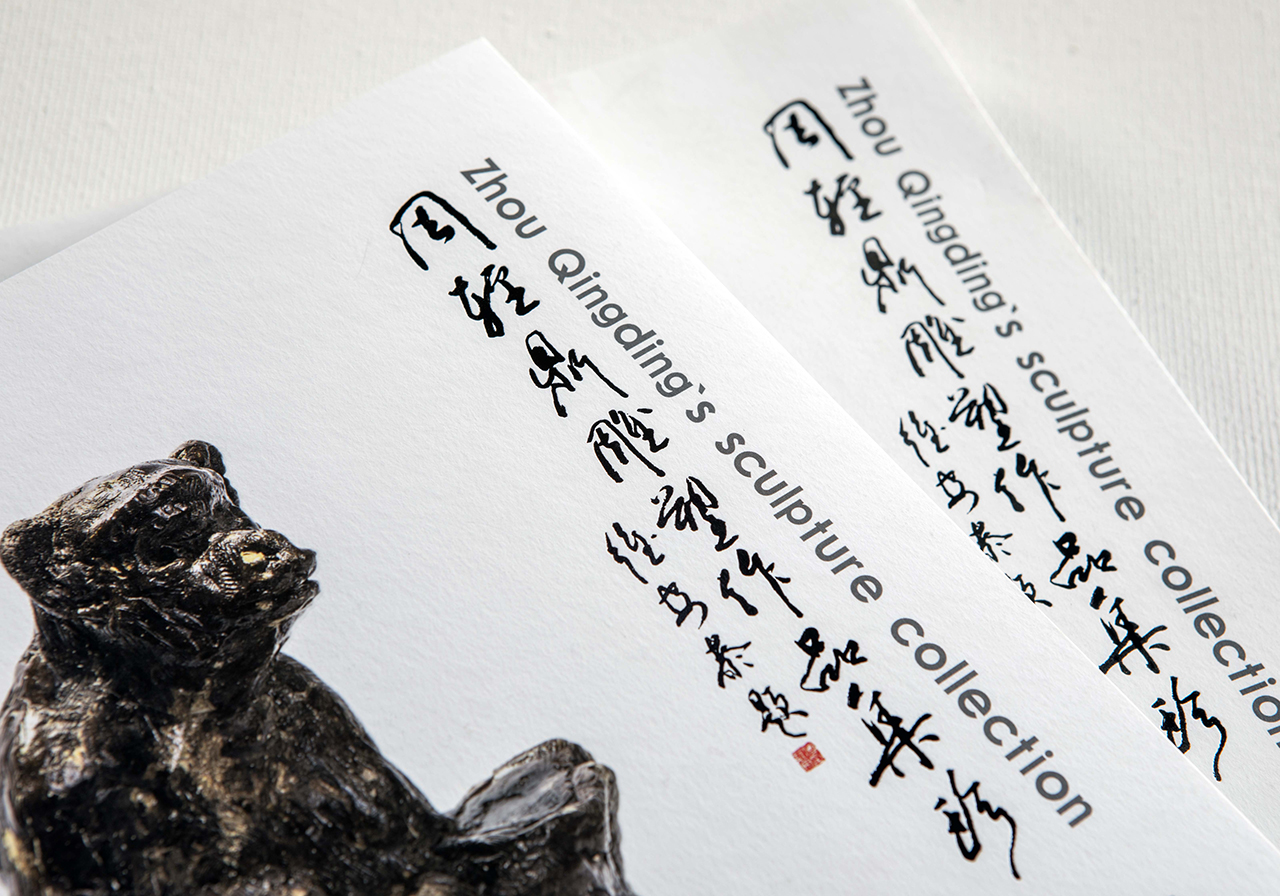 Zhou Qingding`s sculpture collection
周轻鼎雕塑作品集珍
Zhou Qingding`s sculpture collection
周轻鼎雕塑作品集珍